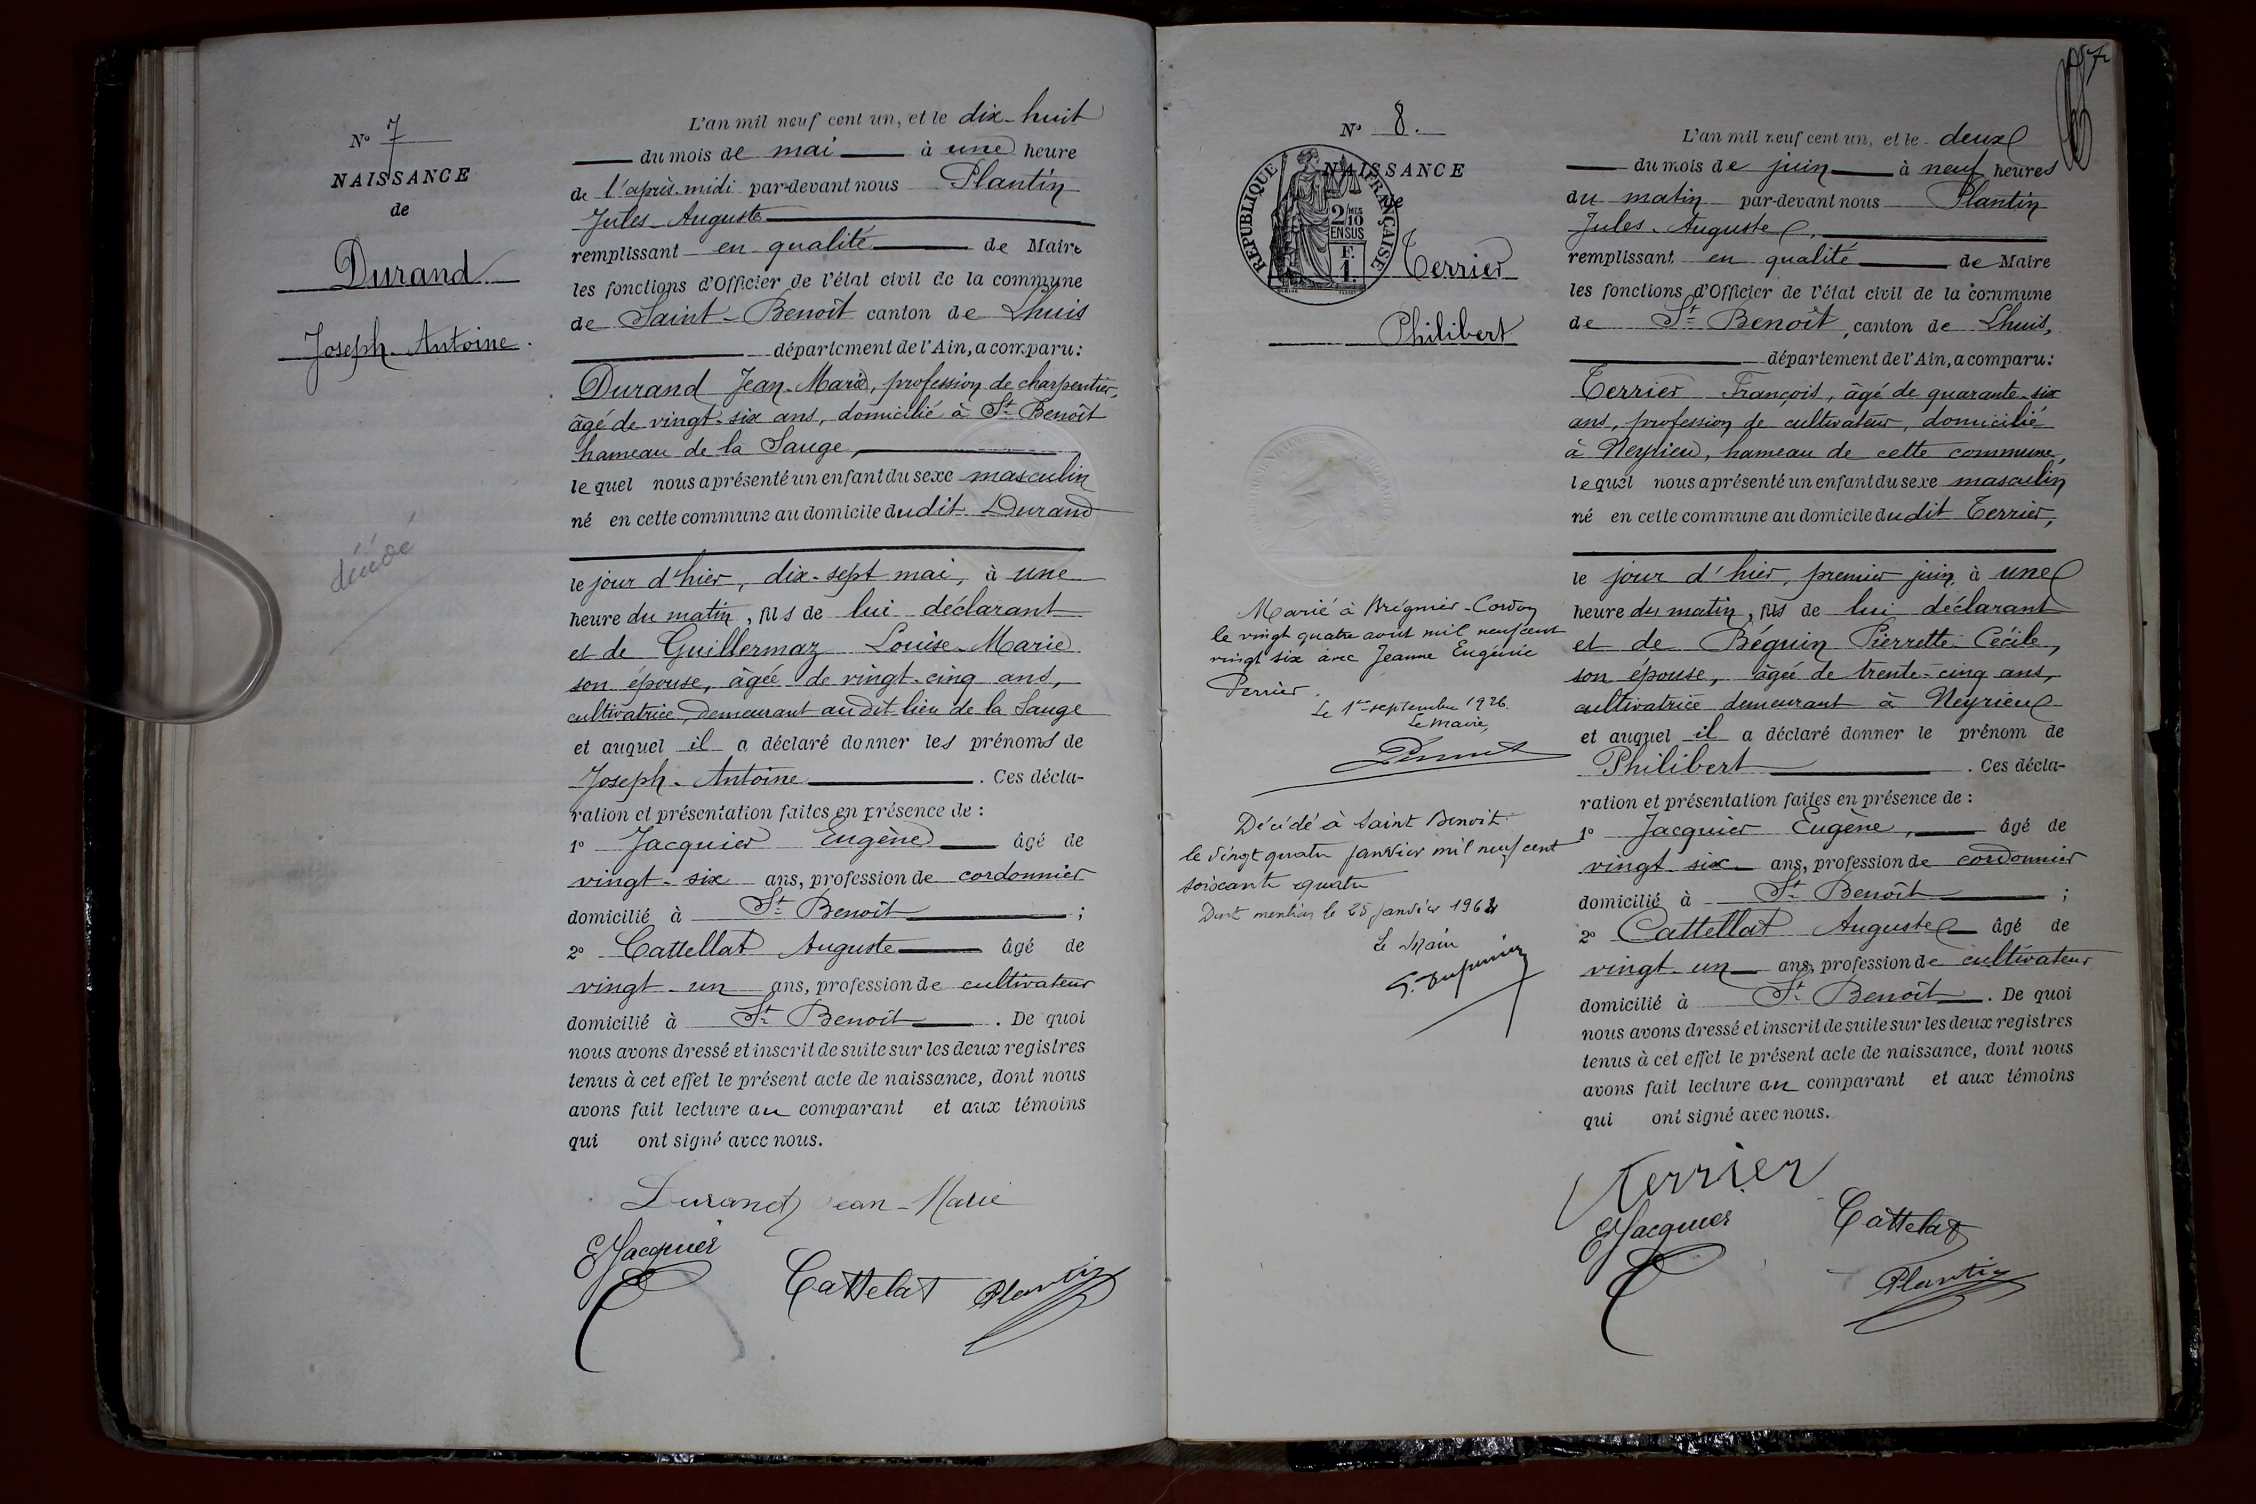 N° 7
NAISSANCE
de
Durand
Joseph-Antoine.
décédé
L'an mil neuf cent un, et le dix-huit
du mois de mai à une heure
de l'après-midi par-devant nous Plantin
Jules-Auguste
remplissant en qualité de Maire
les fonctions d'Officier de l'état civil de la commune
de Saint-Benoît canton de Lhuis
département de l'Ain, a comparu:
Durand Jean-Marie, profession de charpentier,
âgé de vingt-six ans, domicilié à St Benoît
hameau de la Sauge,
lequel nous a présenté un enfant du sexe masculin
né en cette commune au domicile dudit Durand
le jour d'hier, dix-sept mai, à une
heure du matin, fils de lui déclarant
et de Guillermaz Louise-Marie
son épouse, âgée de vingt-cinq ans,
cultivatrice, demeurant audit lieu de la Sauge
et auquel il a déclaré donner les prénoms de
Joseph-Antoine. Ces décla-
ration et présentation faites en présence de :
1° Jacquier Eugène âgé de
vingt-six ans, profession de cordonnier
domicilié à St Benoît ;
2° Cattellat Auguste âgé de
vingt-un ans, profession de cultivateur
domicilié à St Benoît. De quoi
nous avons dressé et inscrit de suite sur les deux registres
tenus à cet effet le présent acte de naissance, dont nous
avons fait lecture au comparant et aux témoins
qui ont signé avec nous.
Durand Jean-Marie
E Jacquier
Cattelat Plantin
N° 8.
NAISSANCE
de
RÉPUBLIQUE FRANÇAISE
2/10
EN SUS
F.
1.
Terrier
Philibert
Marié à Brégnier-Cordon
le vingt quatre août mil neuf cent
vingt six avec Jeanne Eugénie
Perrier.
Le 1er septembre 1926.
Le Maire,
Décédé à Saint Benoit
le vingt quatre janvier mil neuf cent
soixante quatre
Dont mention le 25 janvier 1964
Le Maire
L'an mil neuf cent un, et le deux
du mois de juin à neuf heures
du matin par-devant nous Plantin
Jules-Auguste,
remplissant en qualité de Maire
les fonctions d'Officier de l'état civil de la commune
de St Benoît, canton de Lhuis,
département de l'Ain, a comparu:
Terrier François, âgé de quarante-six
ans, profession de cultivateur, domicilié
à Neyrieu, hameau de cette commune,
lequel nous a présenté un enfant du sexe masculin
né en cette commune au domicile dudit Terrier,
le jour d'hier, premier juin, à une
heure du matin, fils de lui déclarant
et de Béguin Pierrette-Cécile,
son épouse, âgée de trente-cinq ans,
cultivatrice demeurant à Neyrieu
et auquel il a déclaré donner le prénom de
Philibert. Ces décla-
ration et présentation faites en présence de :
1° Jacquier Eugène, âgé de
vingt six ans, profession de cordonnier
domicilié à St Benoît ;
2° Cattellat Auguste âgé de
vingt-un ans, profession de cultivateur
domicilié à St Benoît. De quoi
nous avons dressé et inscrit de suite sur les deux registres
tenus à cet effet le présent acte de naissance, dont nous
avons fait lecture au comparant et aux témoins
qui ont signé avec nous.
Terrier
E Jacquier
Cattelat
Plantin